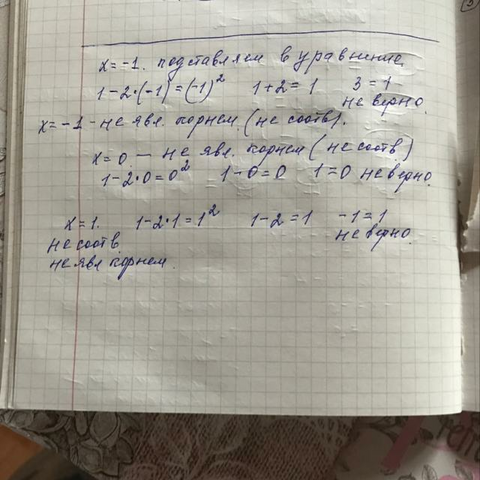 x = -1. подставляем в уравнение.
1-2·(-1) = (-1)² 1+2 = 1 3 = 1
не верно.
x = -1 - не явл. корнем. (не соотв).
x = 0 — не явл. корнем (не соотв)
1-2·0 = 0² 1-0 = 0 1 = 0 не верно.
x = 1. 1-2·1 = 1² 1-2 = 1 -1 = 1
не соотв. не верно.
не явл корнем.